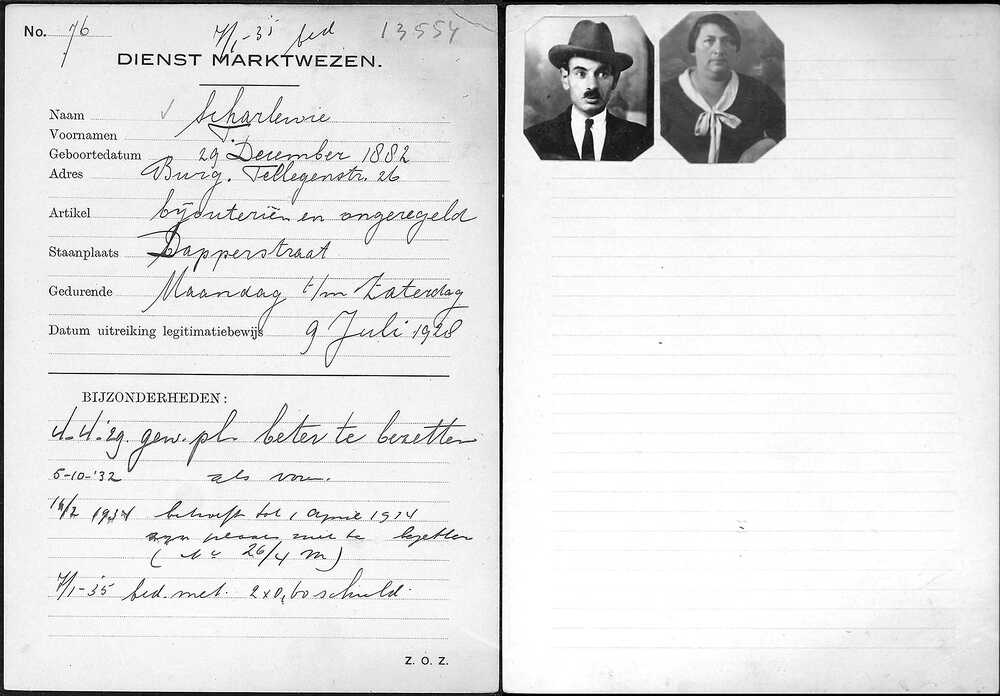 No. 76 7/1-35 bed 13554
DIENST MARKTWEZEN.
Naam Scharlewie
Voornamen J.
Geboortedatum 29 December 1882
Adres Burg. Tellegenstr. 26
Artikel bijouteriën en ongeregeld
Staanplaats Dapperstraat
Gedurende Maandag t/m Zaterdag
Datum uitreiking legitimatiebewijs 9 Juli 1928
BIJZONDERHEDEN:
4-4-'29. gew. pl. beter te bezetten
5-10-'32 als voren.
1934 behoeft tot 1 April 1934
zijn plaats niet te bezetten
( 26/4 M)
7/1-35 bed. met. 2x0,60 schuld.
Z. O. Z.